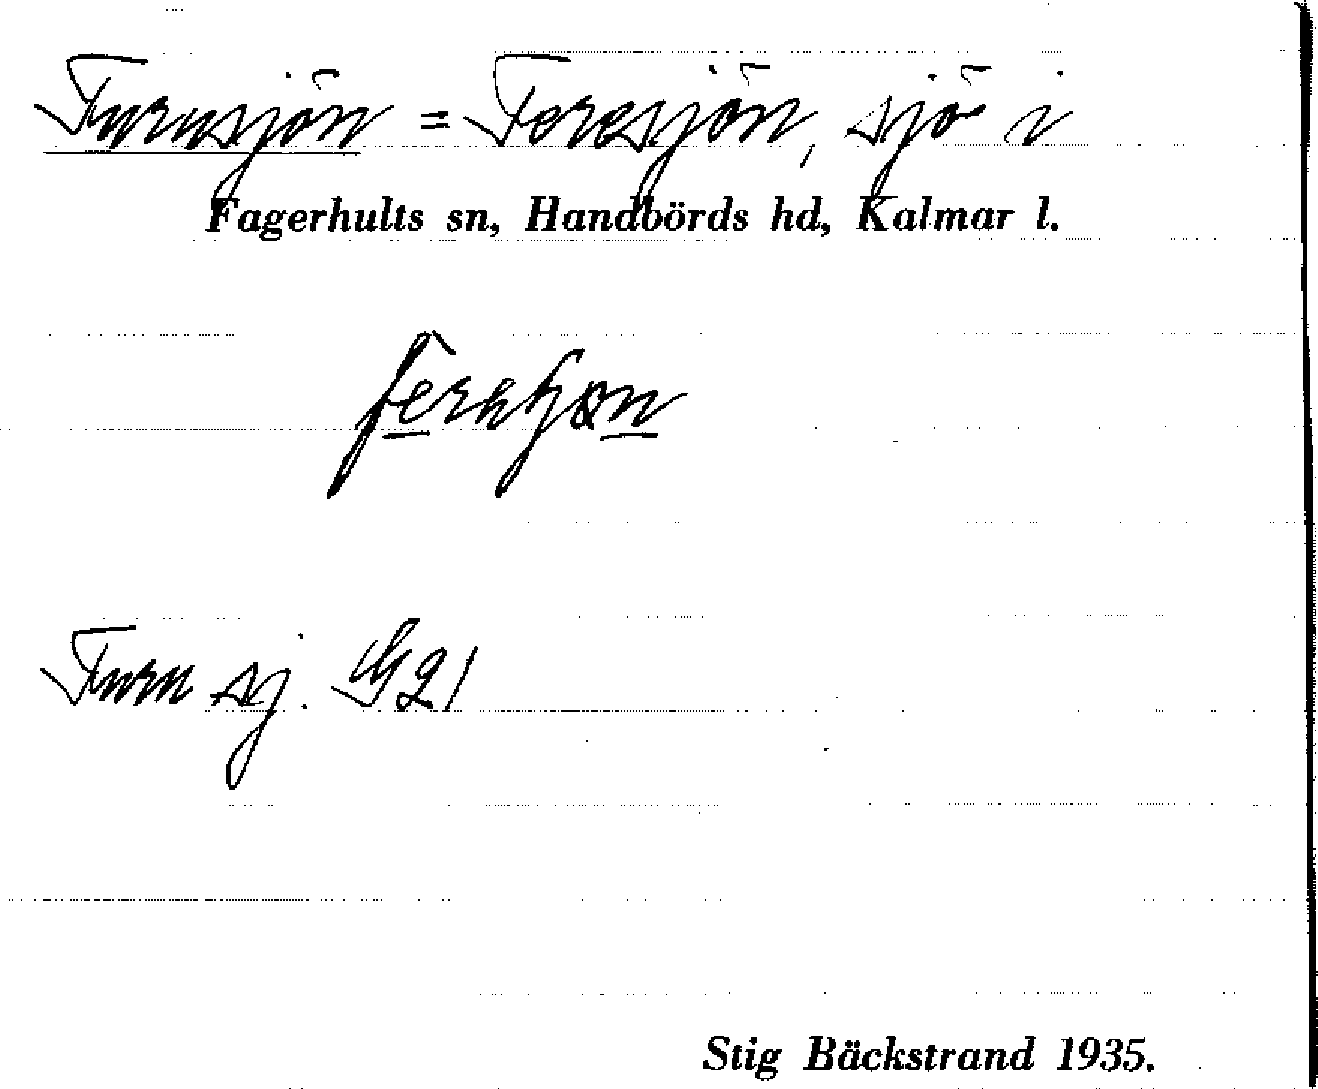 Furusjön = Feresjön, sjö i
Fagerhults sn, Handbörds hd, Kalmar l.
Furu sj. G21
Stig Bäckstrand 1935.